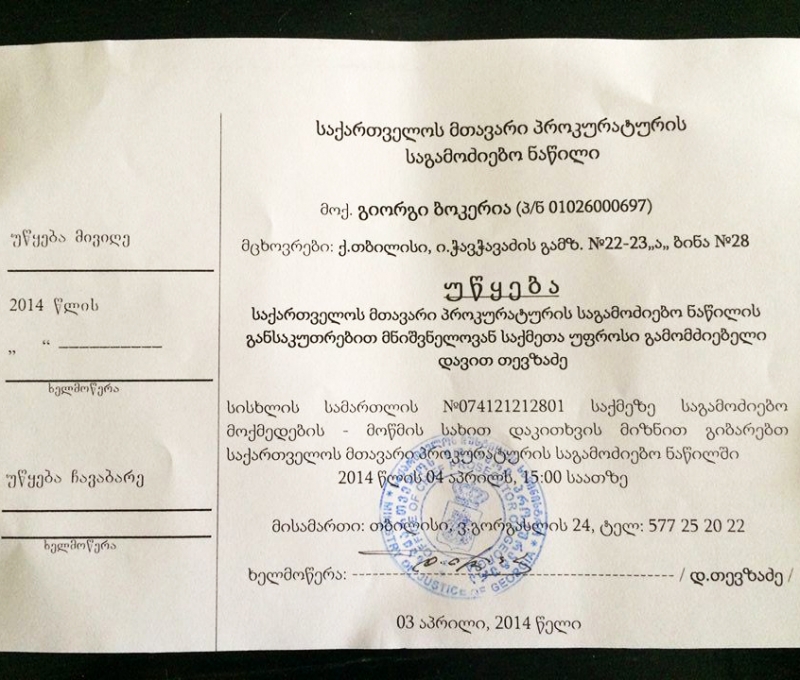 საქართველოს მთავარი პროკურატურის
საგამოძიებო ნაწილი
მოქ. გიორგი ბოკერია (პ/ნ 01026000697)
მცხოვრები: ქ.თბილისი, ი.ჭავჭავაძის გამზ. №22-23„ა„ ბინა №28
უწყება
საქართველოს მთავარი პროკურატურის საგამოძიებო ნაწილის
განსაკუთრებით მნიშვნელოვან საქმეთა უფროსი გამომძიებელი
დავით თევზაძე
სისხლის სამართლის №074121212801 საქმეზე საგამოძიებო
მოქმედების - მოწმის სახით დაკითხვის მიზნით გიბარებთ
საქართველოს მთავარი პროკურატურის საგამოძიებო ნაწილში
2014 წლის 04 აპრილს, 15:00 საათზე
მისამართი: თბილისი, ვ.გორგასლის 24, ტელ: 577 25 20 22
ხელმოწერა: ------------------------------------------ / დ.თევზაძე /
03 აპრილი, 2014 წელი
უწყება მივიღე
2014 წლის
„ “ ____________
ხელმოწერა
უწყება ჩავაბარე
ხელმოწერა
MINISTRY OF JUSTICE OF GEORGIA